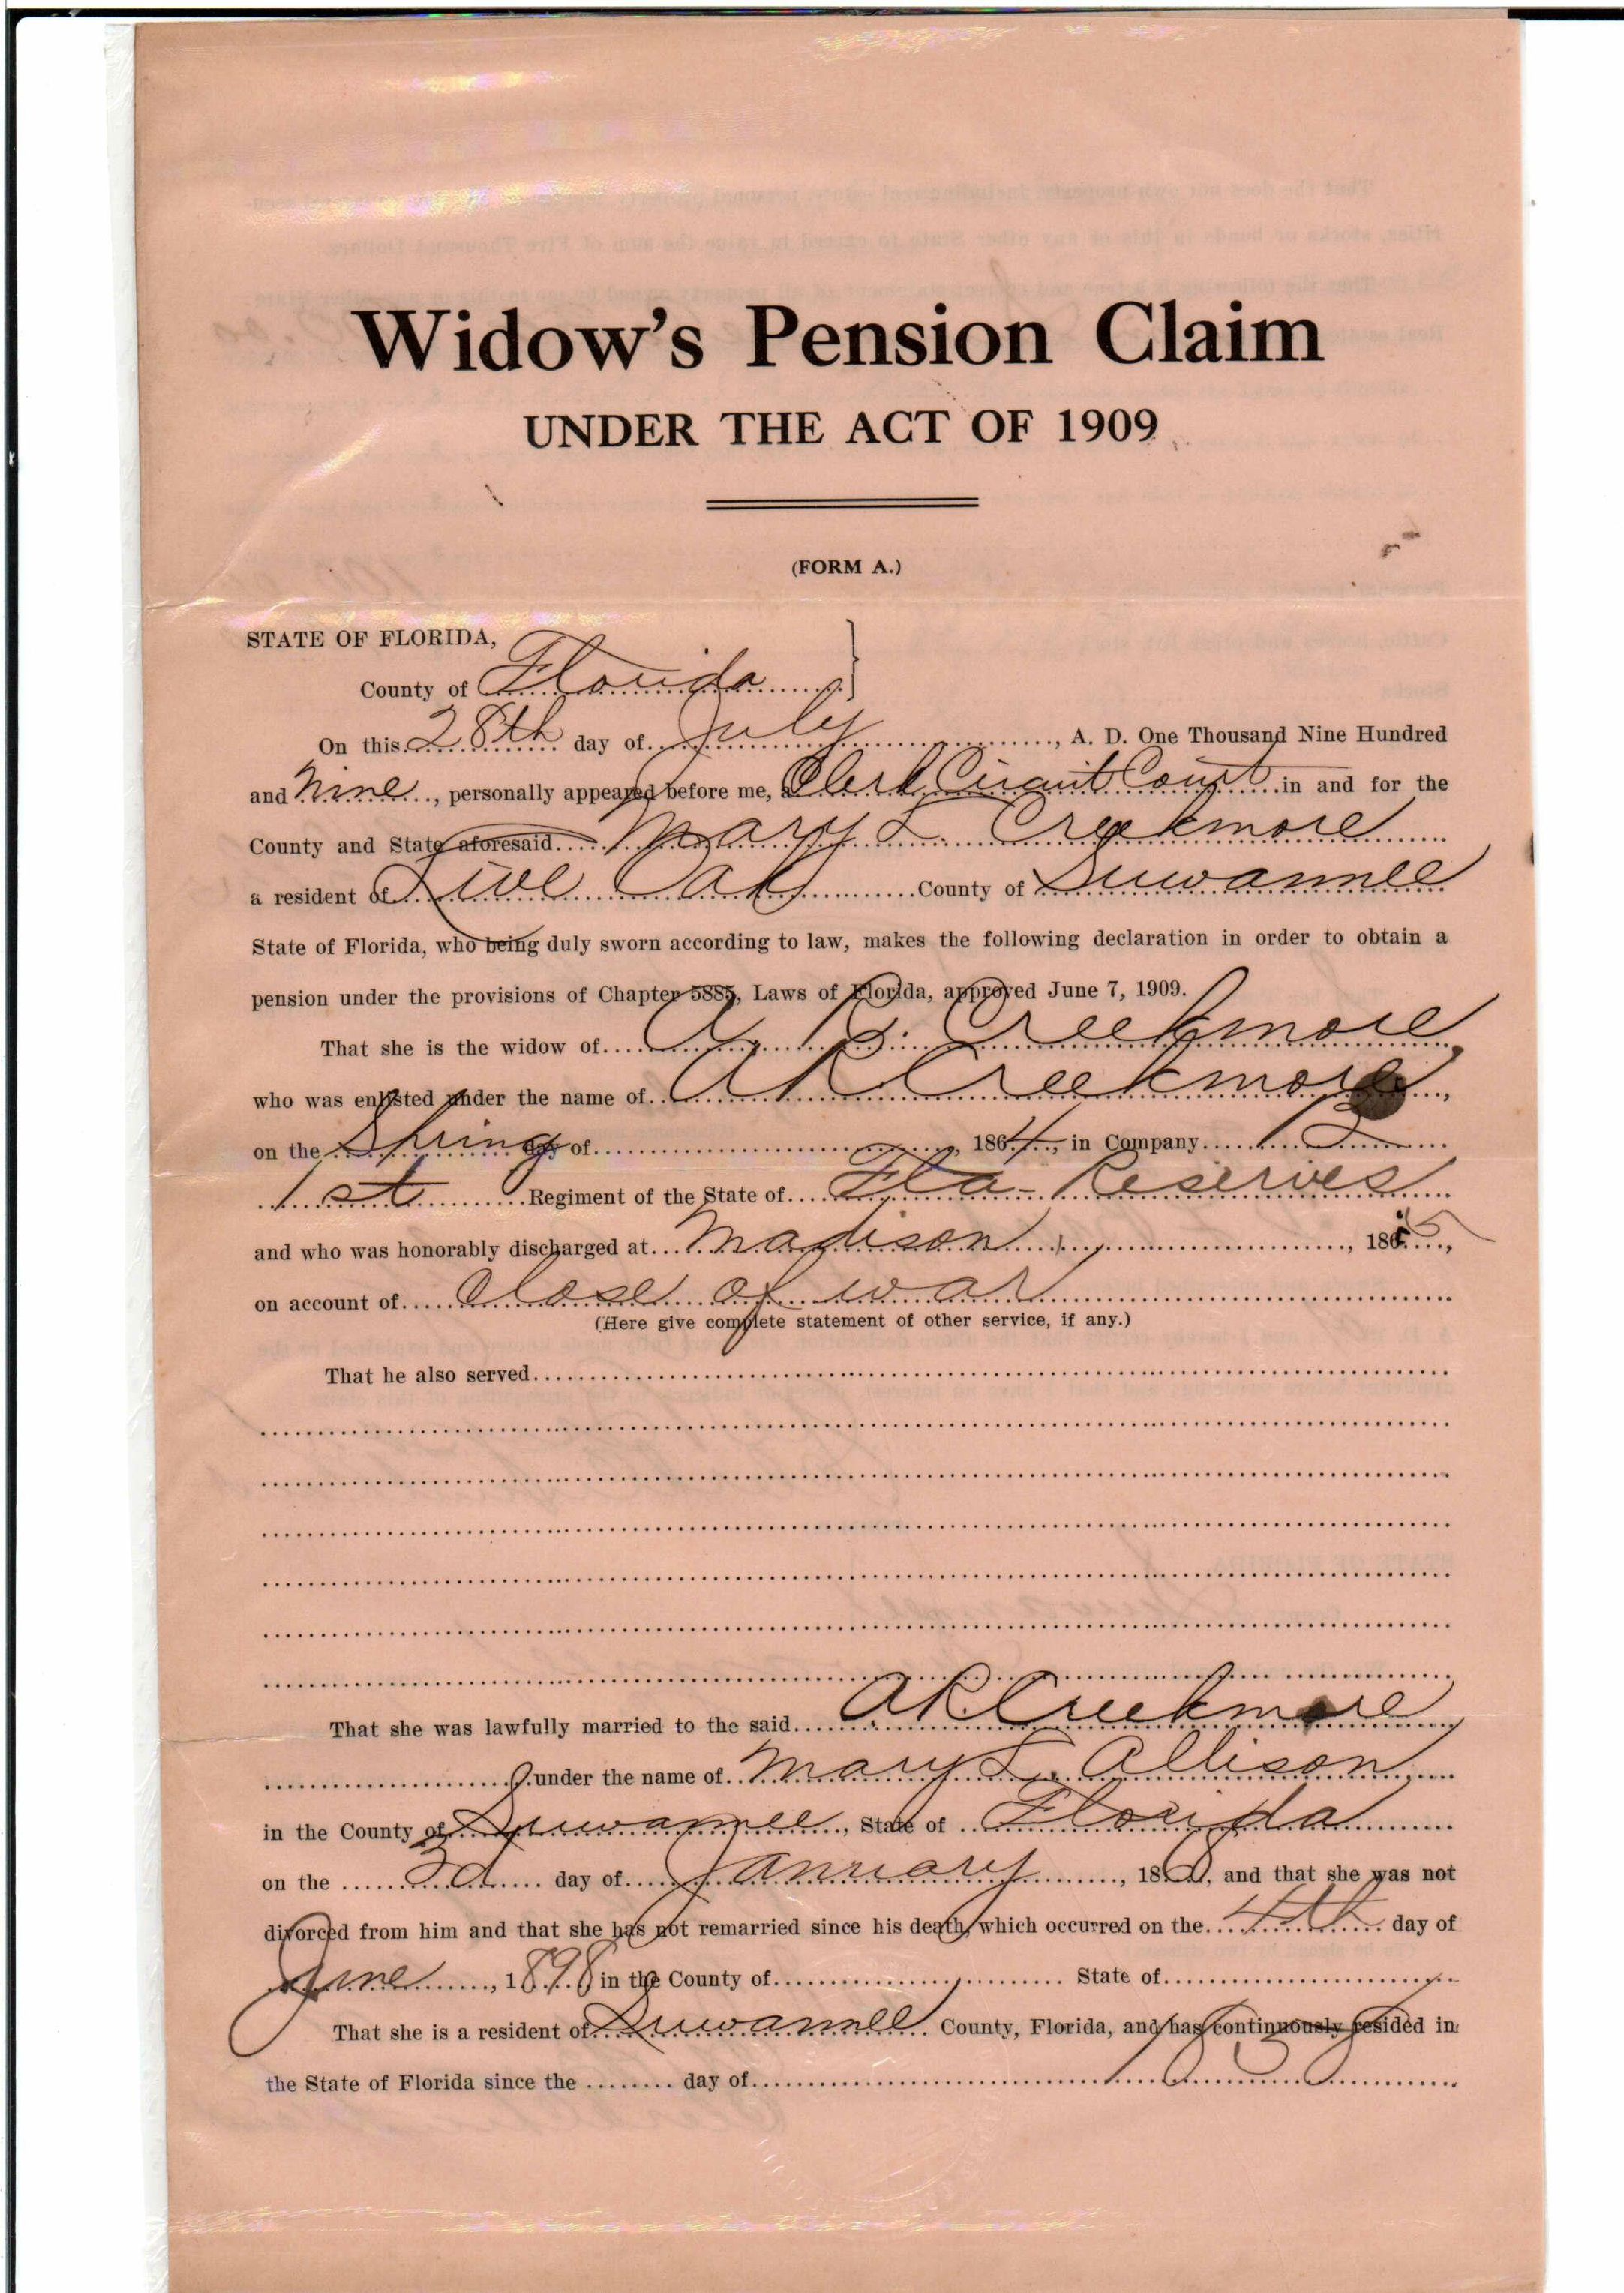 Widow's Pension Claim
UNDER THE ACT OF 1909
(FORM A.)
STATE OF FLORIDA,
County of Florida
On this 28th day of July, A. D. One Thousand Nine Hundred
and Nine, personally appeared before me, a Clerk Circuit Court in and for the
County and State aforesaid Mary L. Creekmore
a resident of Live Oak County of Suwannee
State of Florida, who being duly sworn according to law, makes the following declaration in order to obtain a
pension under the provisions of Chapter 5885, Laws of Florida, approved June 7, 1909.
That she is the widow of A R. Creekmore
who was enlisted under the name of A R Creekmore,
on the Spring day of, 1864, in Company
1st Regiment of the State of Fla - Reserves
and who was honorably discharged at Madison, 1865,
on account of Close of war
(Here give complete statement of other service, if any.)
That he also served
That she was lawfully married to the said A R Creekmore
under the name of Mary L. Allison
in the County of Suwannee, State of Florida
on the 3d day of January, 18, and that she was not
divorced from him and that she has not remarried since his death, which occurred on the 4th day of
June, 1898 in the County of State of
That she is a resident of Suwannee County, Florida, and has continuously resided in
the State of Florida since the day of 1858